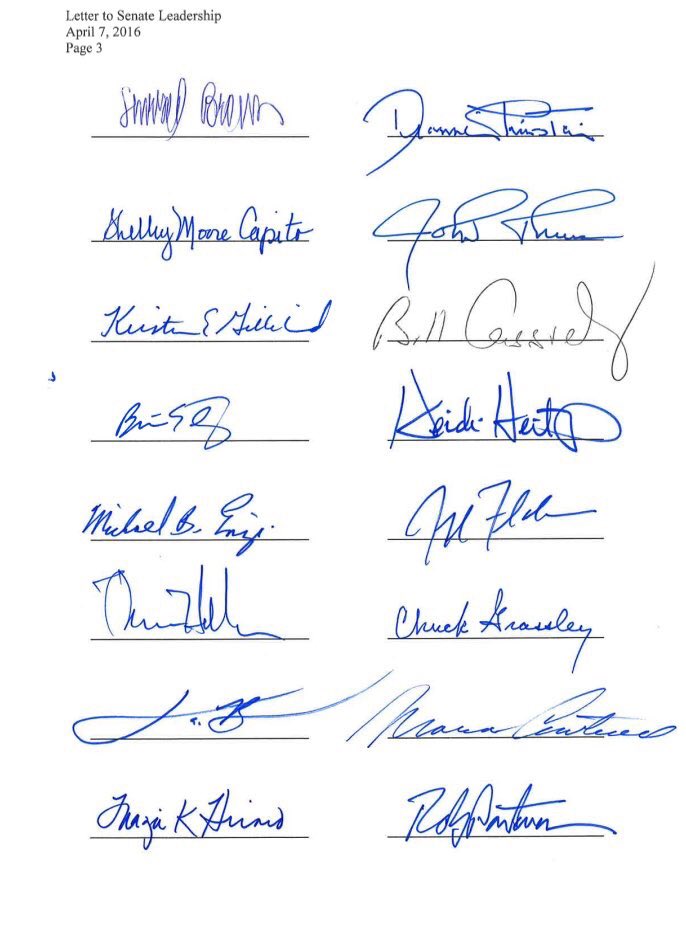 Letter to Senate Leadership
April 7, 2016
Page 3
Sherrod Brown Dianne Feinstein
Shelley Moore Capito John Thune
Kirsten E Gillibrand Bill Cassidy
Heidi Heitkamp
Michael B. Enzi
Dean Heller Chuck Grassley
Maria Cantwell
Mazie K Hirono Rob Portman